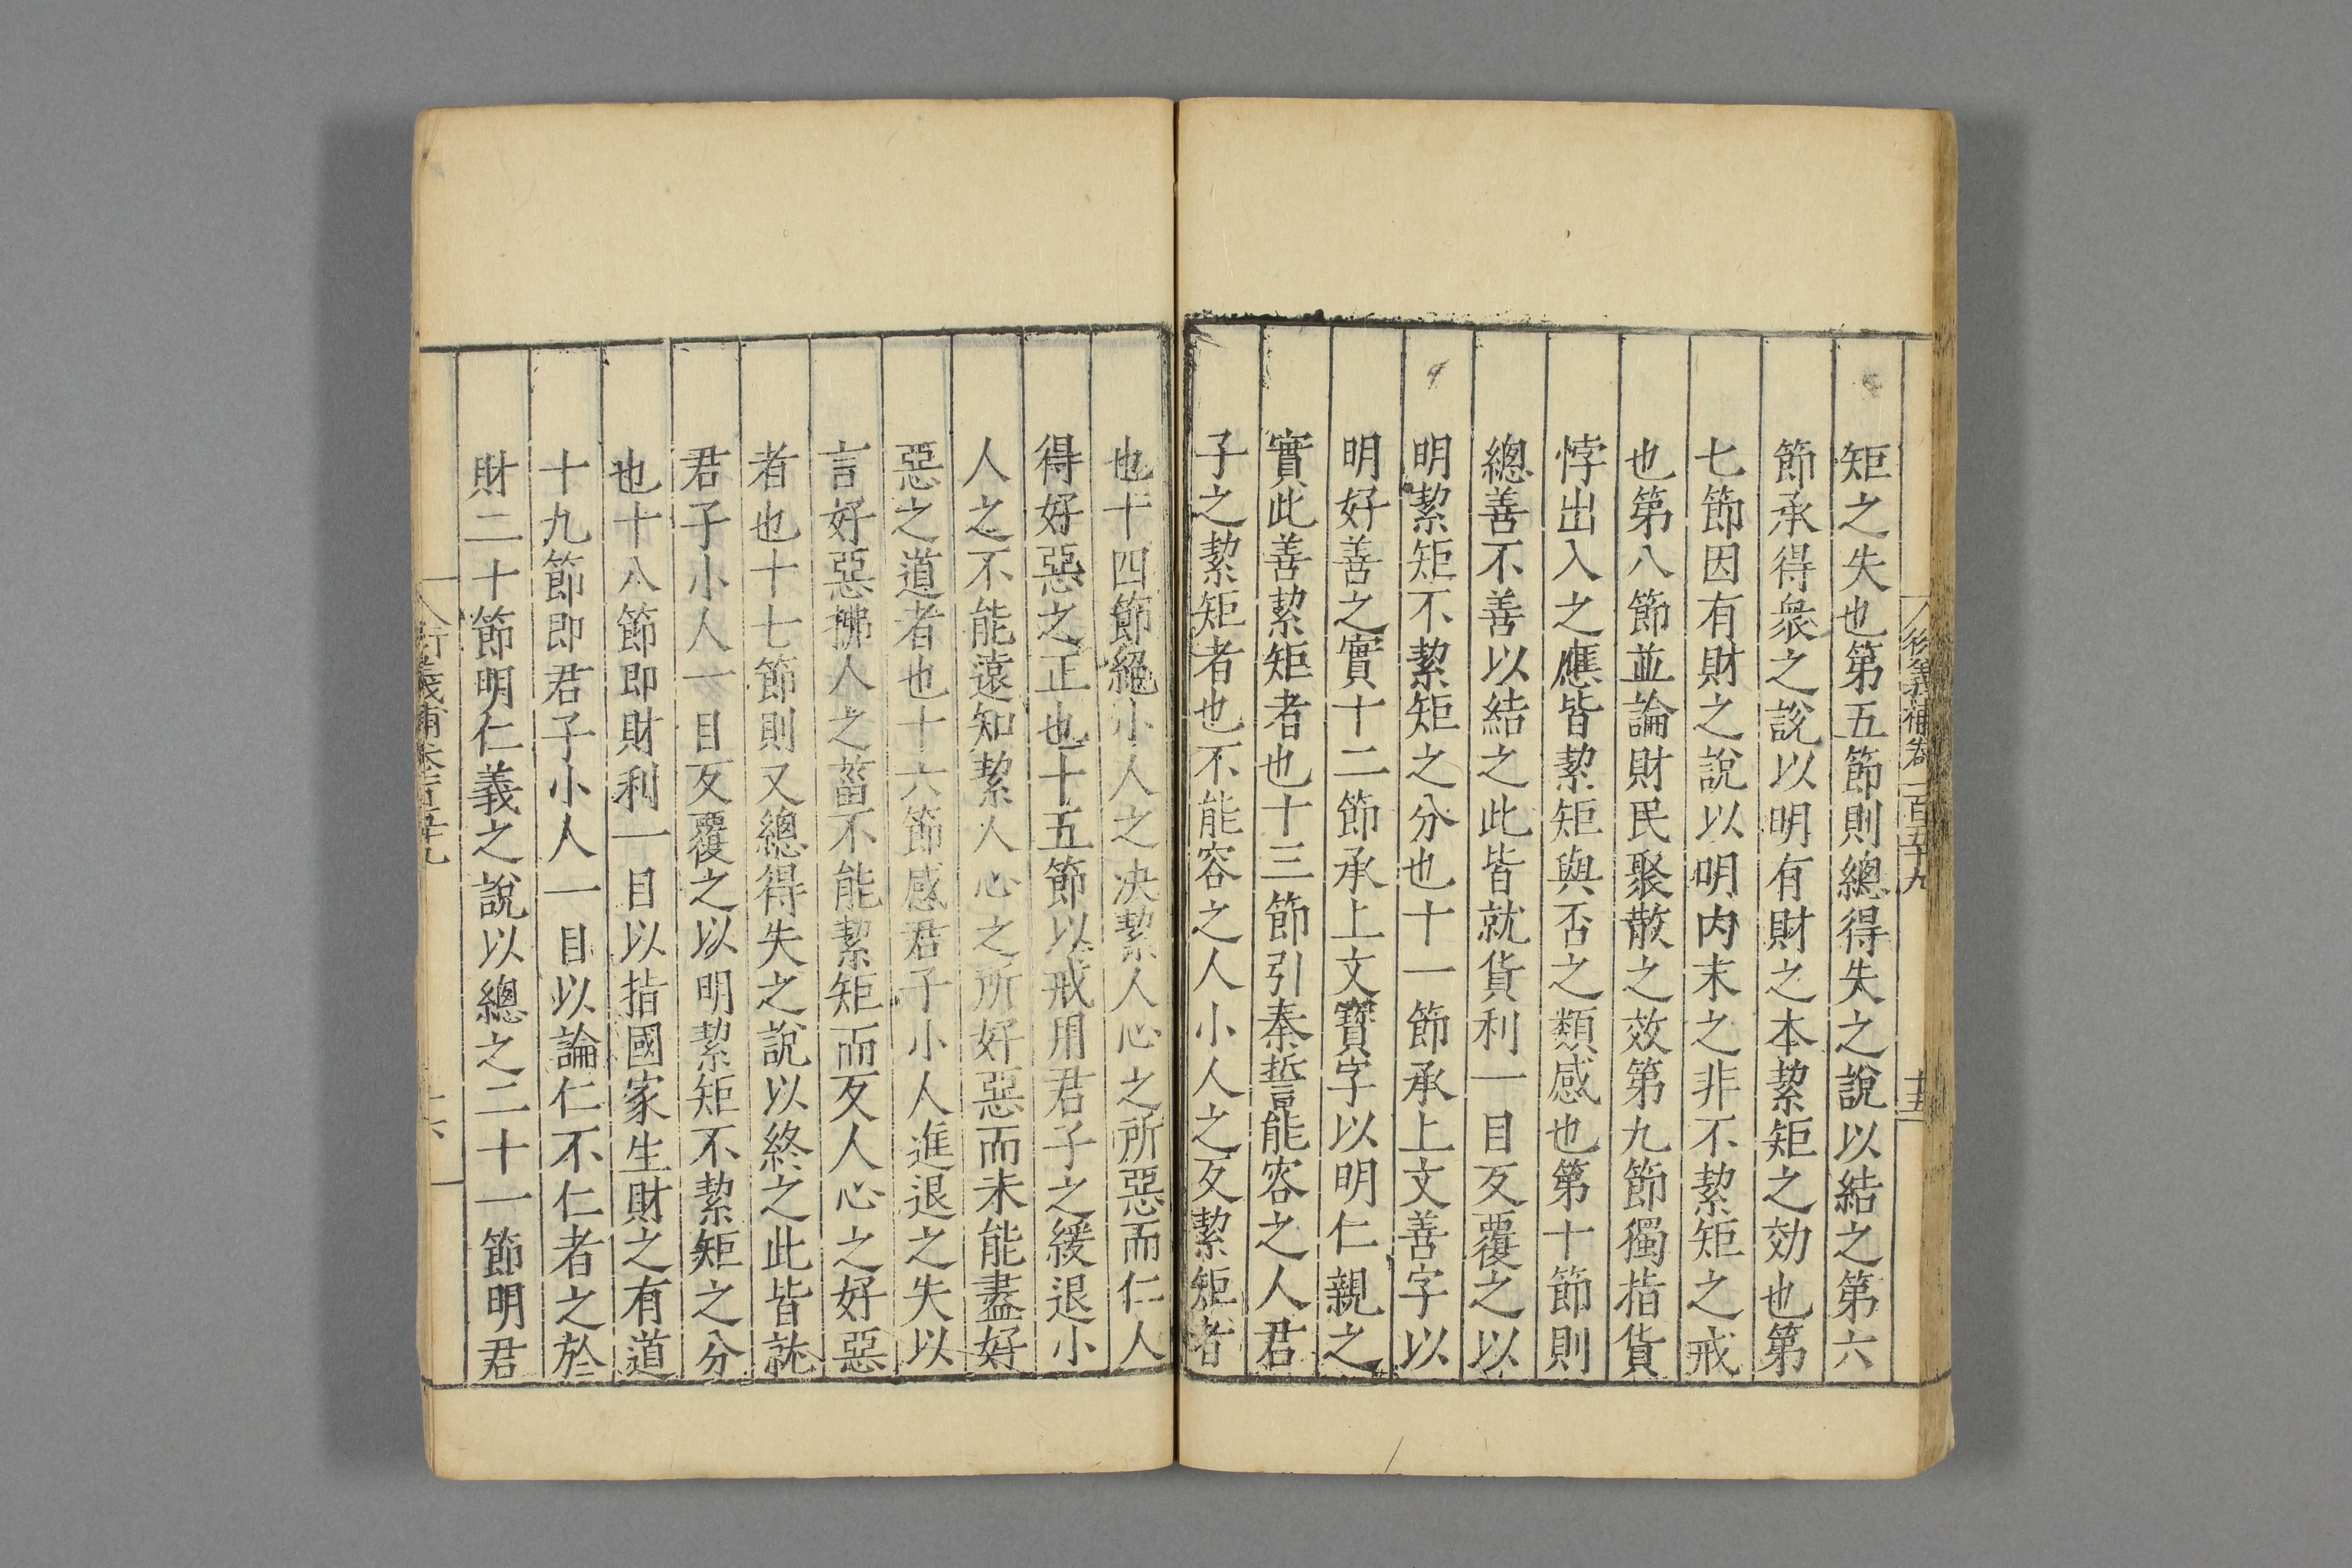 衍義補卷一百五十九
十五
矩之失也第五節則總得失之說以結之第六
節承得衆之說以明有財之本絜矩之効也第
七節因有財之說以明内末之非不絜矩之戒
也第八節並論財民聚散之效第九節獨指貨
悖出入之應皆絜矩與否之類感也第十節則
總善不善以結之此皆就貨利一目反覆之以
明絜矩不絜矩之分也十一節承上文善字以
明好善之實十二節承上文寶字以明仁親之
實此善絜矩者也十三節引秦誓能容之人君
子之絜矩者也不能容之人小人之反絜矩者
也十四節絕小人之决絜人心之所惡而仁人
得好惡之正也十五節以戒用君子之緩退小
人之不能遠知絜人心之所好惡而未能盡好
惡之道者也十六節感君子小人進退之失以
言好惡拂人之菑不能絜矩而反人心之好惡
者也十七節則又總得失之說以終之此皆就
君子小人一目反覆之以明絜矩不絜矩之分
也十八節即財利一目以指國家生財之有道
十九節即君子小人一目以論仁不仁者之於
財二十節明仁義之說以總之二十一節明君
衍義補卷一百五十九
十六